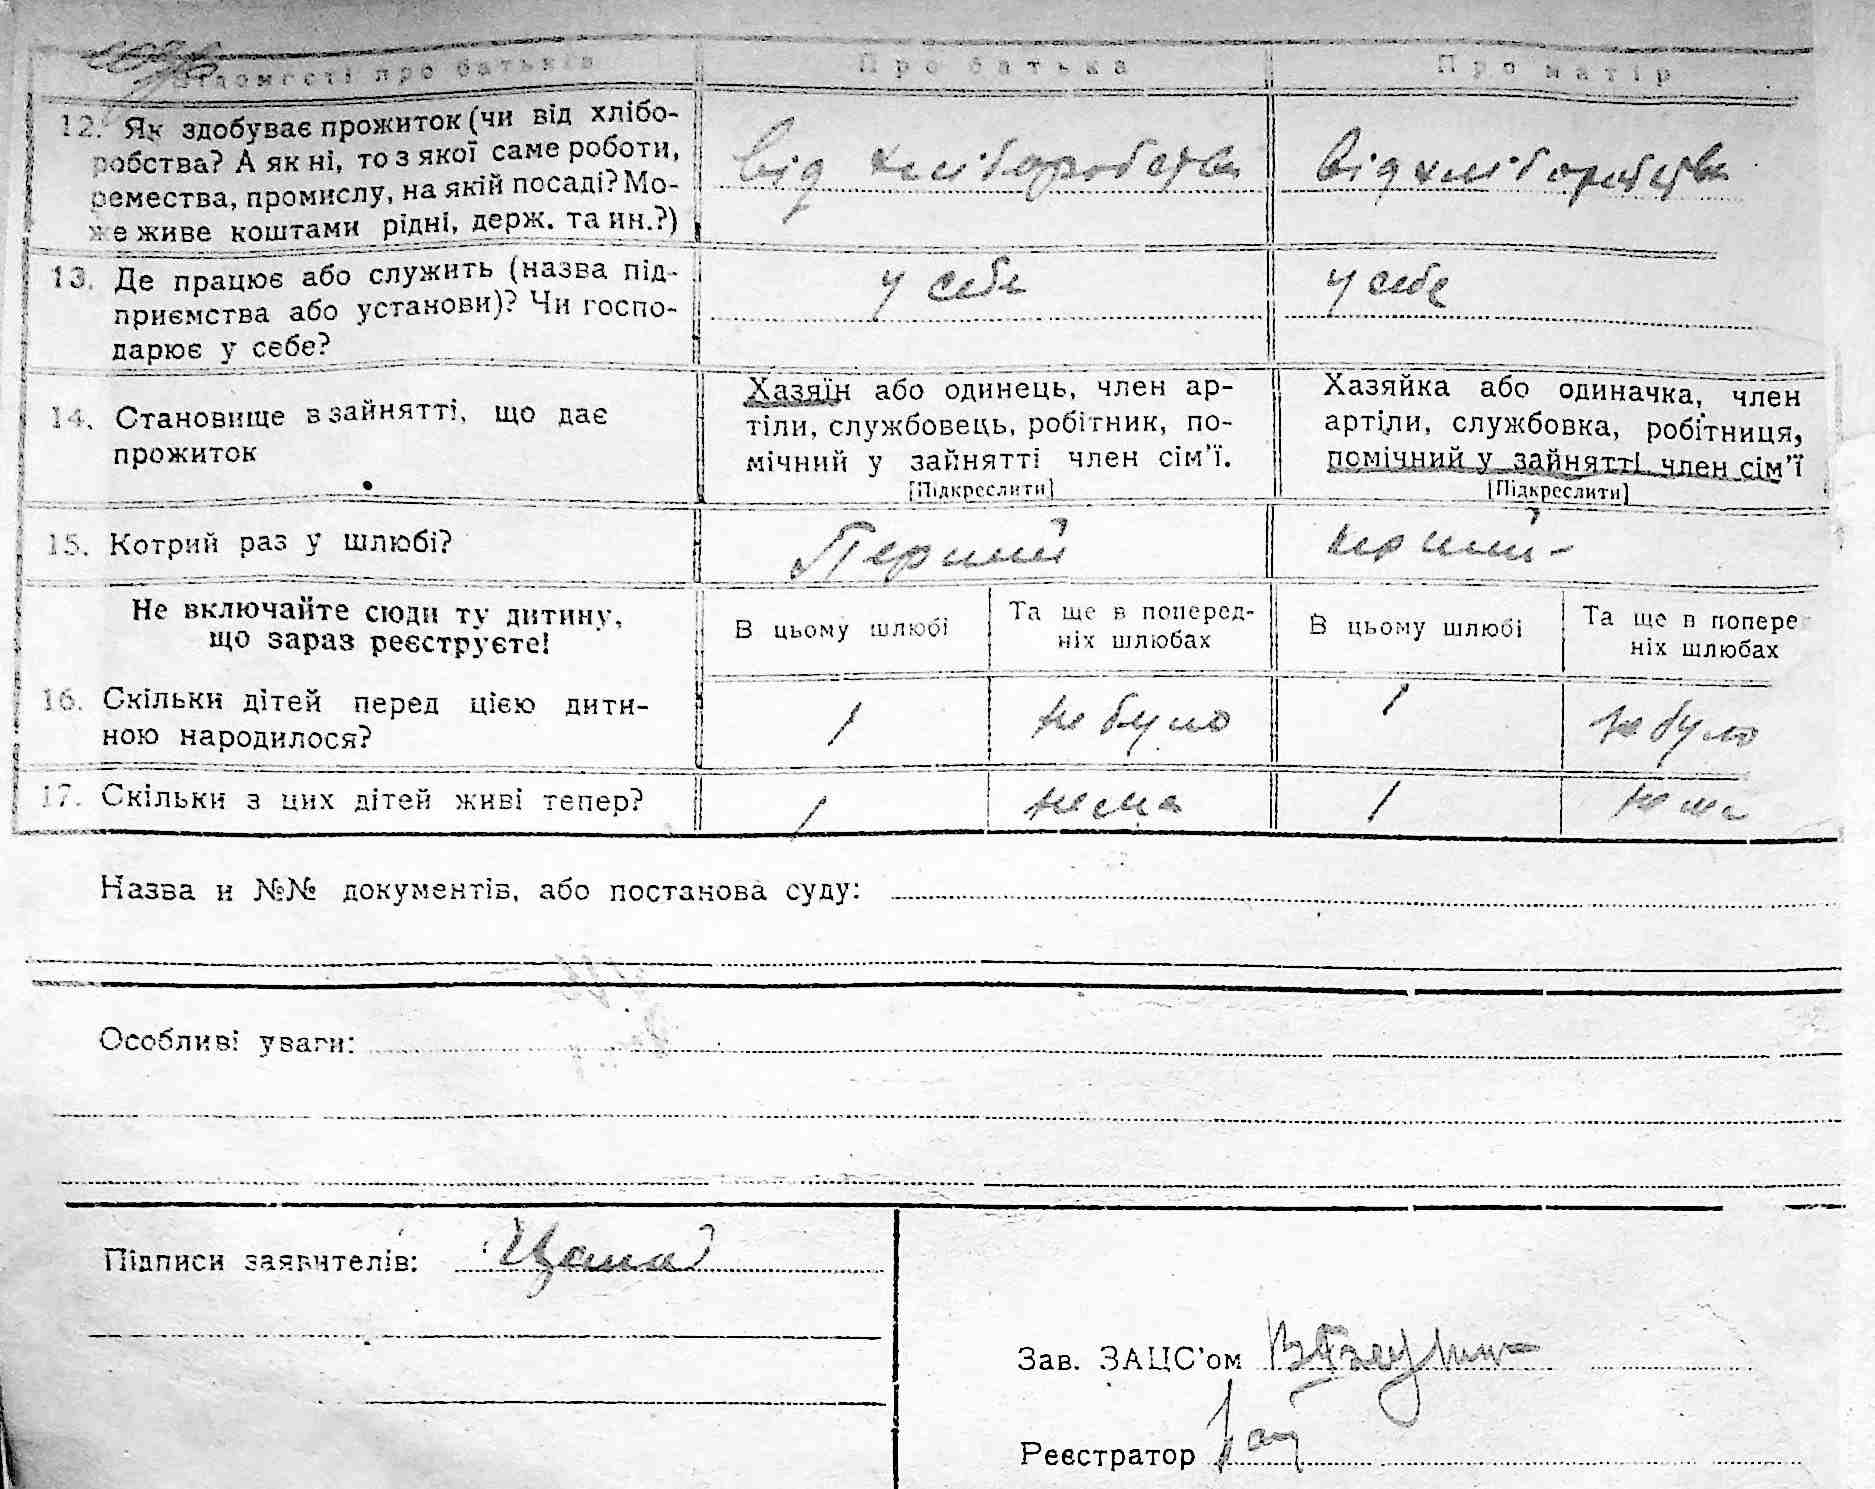 Відомості про батьків Про батька Про матір
12. Як здобуває прожиток (чи від хлібо-
робства? А як ні, то з якої саме роботи,
ремества, промислу, на якій посаді? Мо-
же живе коштами рідні, держ. та ин.?)
від хліборобства від хліборобства
13. Де працює або служить (назва під-
приємства або установи)? Чи госпо-
дарює у себе?
у себе у себе
14. Становище в зайнятті, що дає
прожиток
Хазяїн або одинець, член ар-
тіли, службовець, робітник, по-
мічний у зайнятті член сім'ї.
[Підкреслити]
Хазяйка або одиначка, член
артіли, службовка, робітниця,
помічний у зайнятті член сім'ї
[Підкреслити]
15. Котрий раз у шлюбі? Перший перший
Не включайте сюди ту дитину,
що зараз реєструєте!
В цьому шлюбі
Та ще в поперед-
ніх шлюбах
В цьому шлюбі
Та ще в попере
ніх шлюбах
16. Скільки дітей перед цією дити-
ною народилося?
1 не було 1 не було
17. Скільки з цих дітей живі тепер? 1 нема 1 нема
Назва и №№ документів, або постанова суду:
Особливі уваги:
Підписи заявителів:
Зав. ЗАЦС'ом
Реєстратор